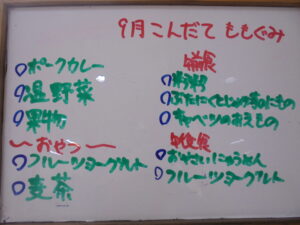 9月こんだて ももぐみ
ポークカレー
温野菜
果物
おやつ
フルーツヨーグルト
麦茶
粥
ぶたにくとじゃが芋のにもの
キャベツのあえもの
おやさいにゅうめん
フルーツヨーグルト